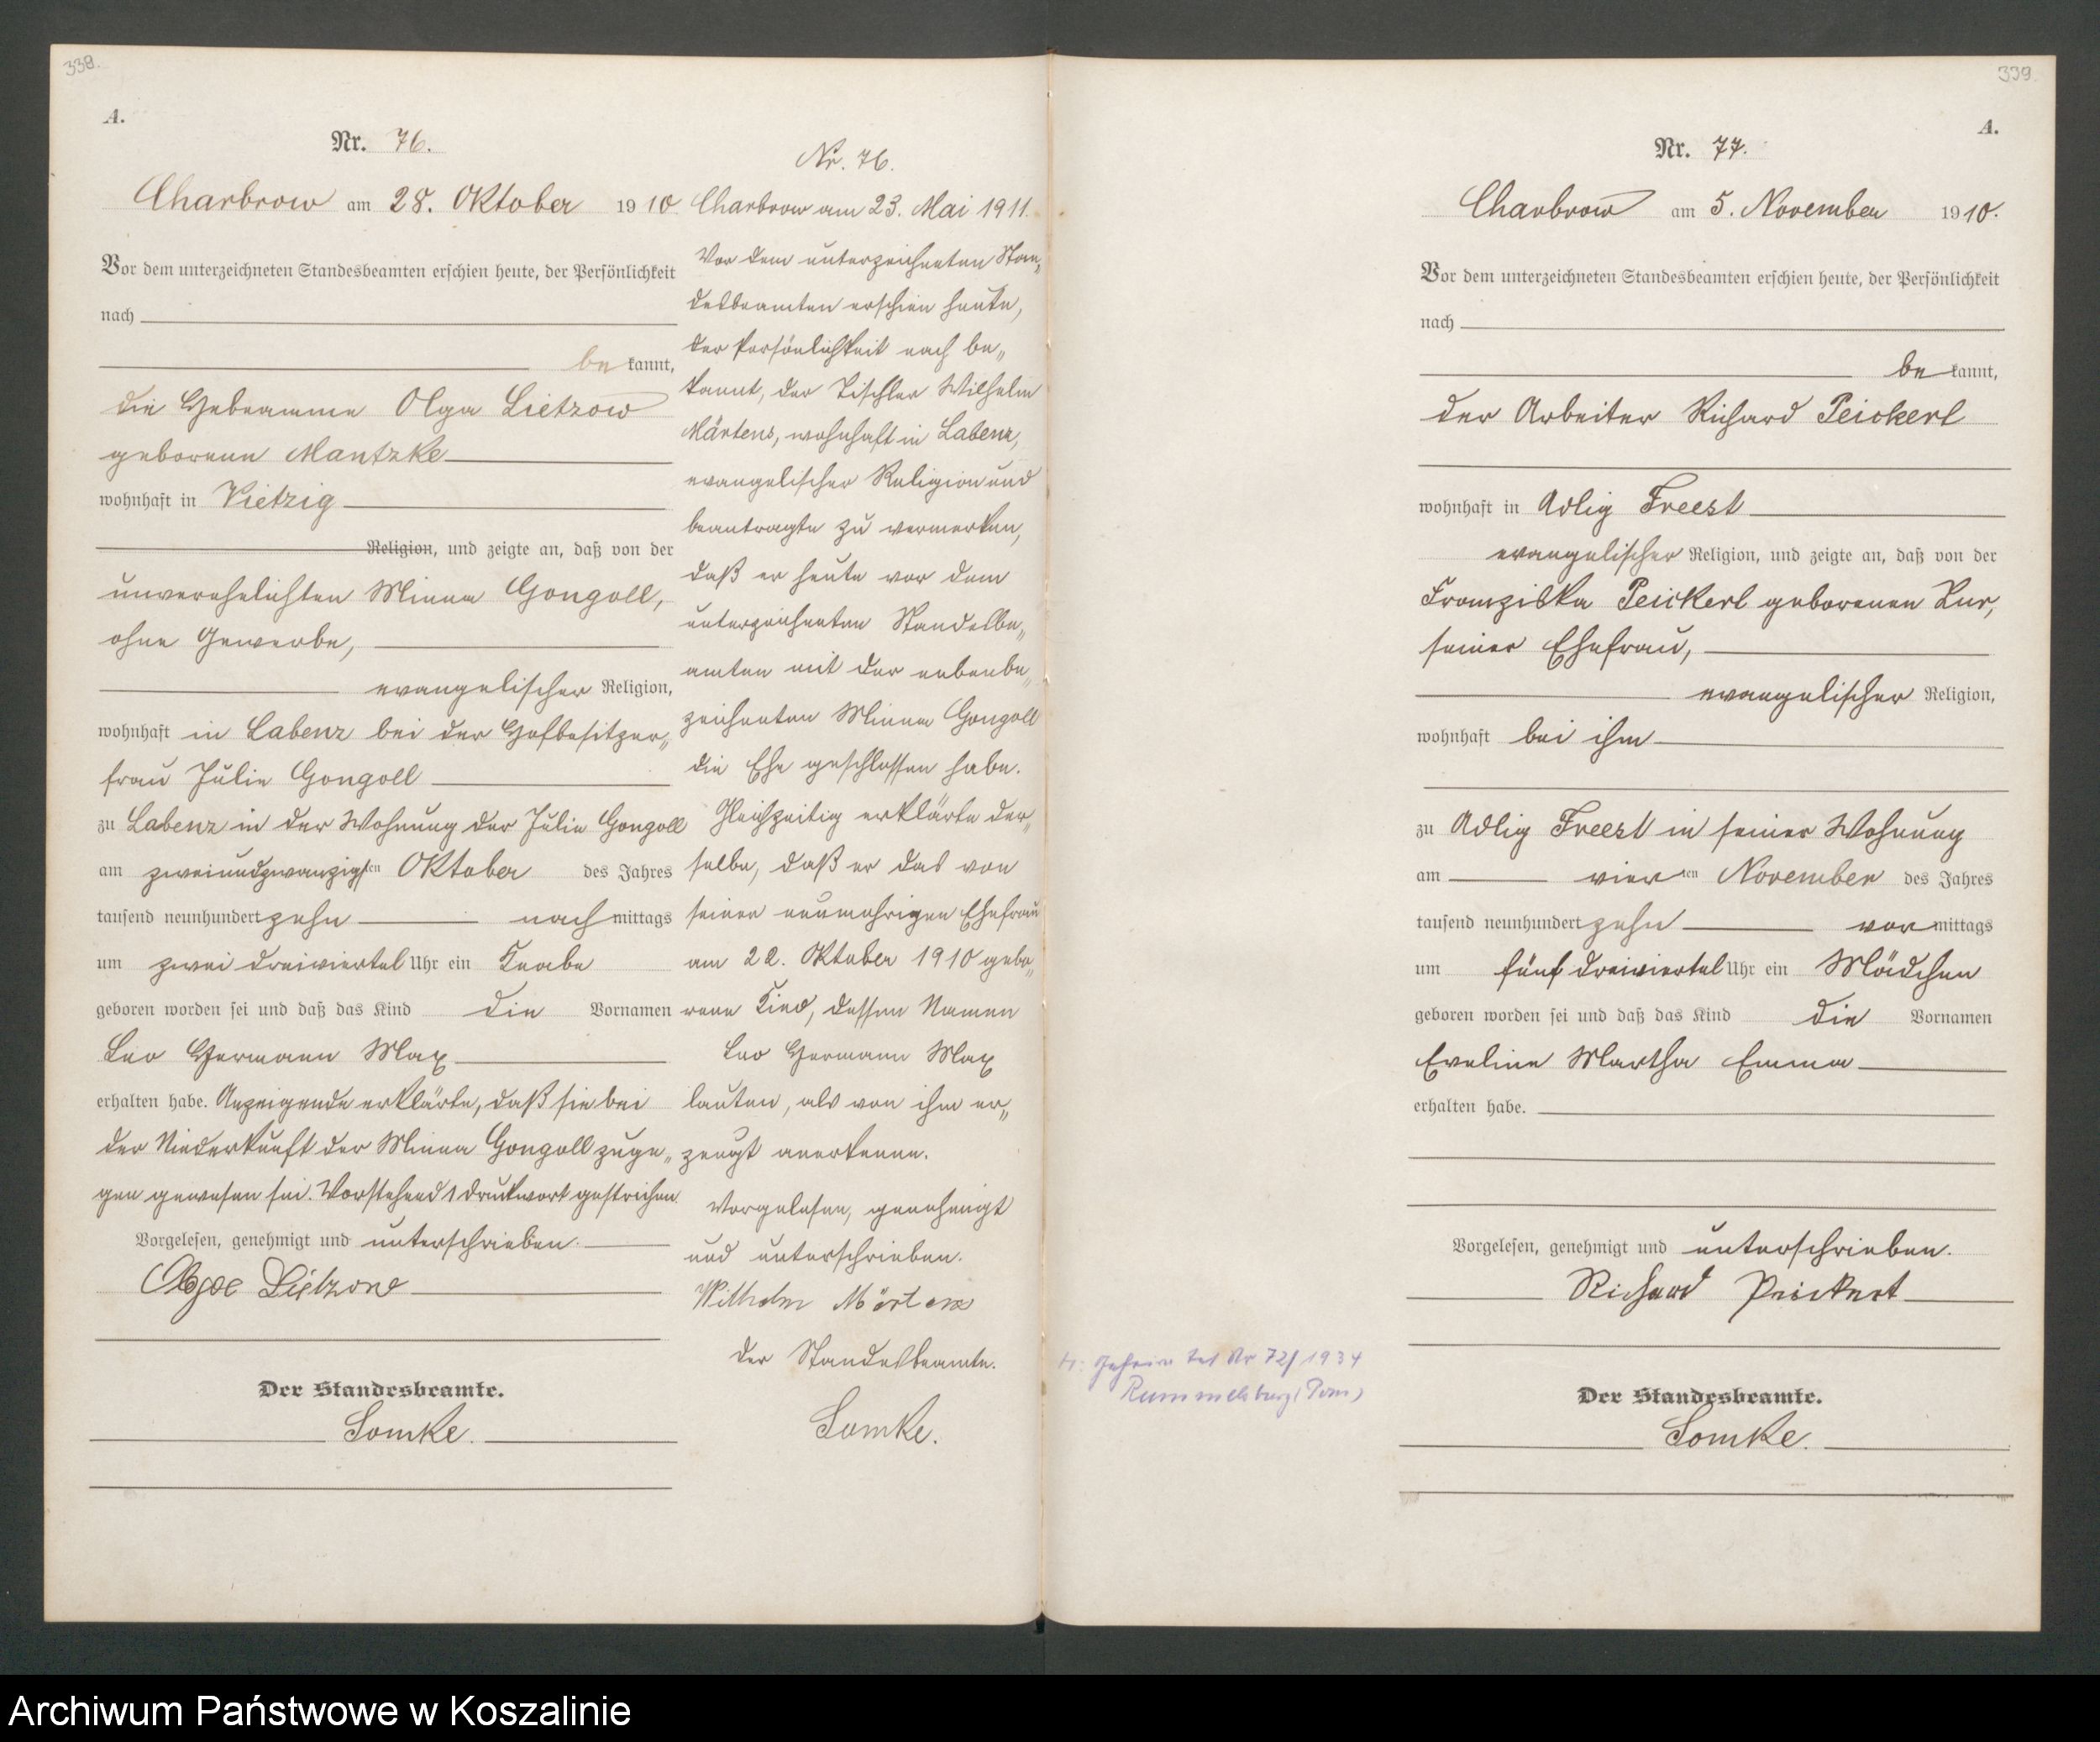 338.
A.
Nr. 76.
Charbrow am 28. Oktober 1910.
Vor dem unterzeichneten Standesbeamten erschien heute, der Persönlichkeit
nach
be kannt,
die Hebeamme Olga Lietzow
geborene Mantzke
wohnhaft in Vietzig
Religion, und zeigte an, daß von der
unverehelichten Minna Gongoll,
ohne Gewerbe,
evangelischer Religion,
wohnhaft in Labenz bei der Hofbesitzer„
frau Julie Gongoll
zu Labenz in der Wohnung der Julie Gongoll
am zweiundzwanzigsten Oktober des Jahres
tausend neunhundert zehn nachmittags
um zwei dreiviertel Uhr ein Knabe
geboren worden sei und daß das Kind die Vornamen
Leo Hermann Max
erhalten habe. Anzeigende erklärte, daß sie bei
der Niederkunft der Minna Gongoll zuge„
gen gewesen sei. Vorstehend 1 Druckwort gestrichen.
Vorgelesen, genehmigt und unterschrieben.
Olga Lietzow
Der Standesbeamte.
Lomke.
Nr. 76.
Charbrow am 23. Mai 1911.
Vor dem unterzeichneten Stan„
desbeamten erschien heute,
der Persönlichkeit nach be„
kannt, der Tischler Wilhelm
Märtens, wohnhaft in Labenz,
evangelischer Religion und
beantragte zu vermerken,
daß er heute vor dem
unterzeichneten Standesbe„
amten mit der nebenbe„
zeichneten Minna Gongoll
die Ehe geschlossen habe.
Gleichzeitig erklärte der„
selbe, daß er das von
seiner nunmehrigen Ehefrau
am 22. Oktober 1910 gebo„
rene Kind, dessen Namen
Leo Hermann Max
lauten, als von ihm er„
zeugt anerkenne.
Vorgelesen, genehmigt
und unterschrieben.
Wilhelm Märtens
Der Standesbeamte.
Lomke.
339.
A.
Nr. 77.
Charbrow am 5. November 1910.
Vor dem unterzeichneten Standesbeamten erschien heute, der Persönlichkeit
nach
be kannt,
der Arbeiter Richard Peickert
wohnhaft in Adlig Freest
evangelischer Religion, und zeigte an, daß von der
Franziska Peickert geborenen Kur,
seiner Ehefrau,
evangelischer Religion,
wohnhaft bei ihm
zu Adlig Freest in seiner Wohnung
am vierten November des Jahres
tausend neunhundert zehn vormittags
um fünf dreiviertel Uhr ein Mädchen
geboren worden sei und daß das Kind die Vornamen
Eveline Martha Emma
erhalten habe.
Vorgelesen, genehmigt und unterschrieben.
Richard Peickert
Der Standesbeamte.
Lomke.
Nr 72/1934
Rummelsburg (Pom)
Archiwum Państwowe w Koszalinie